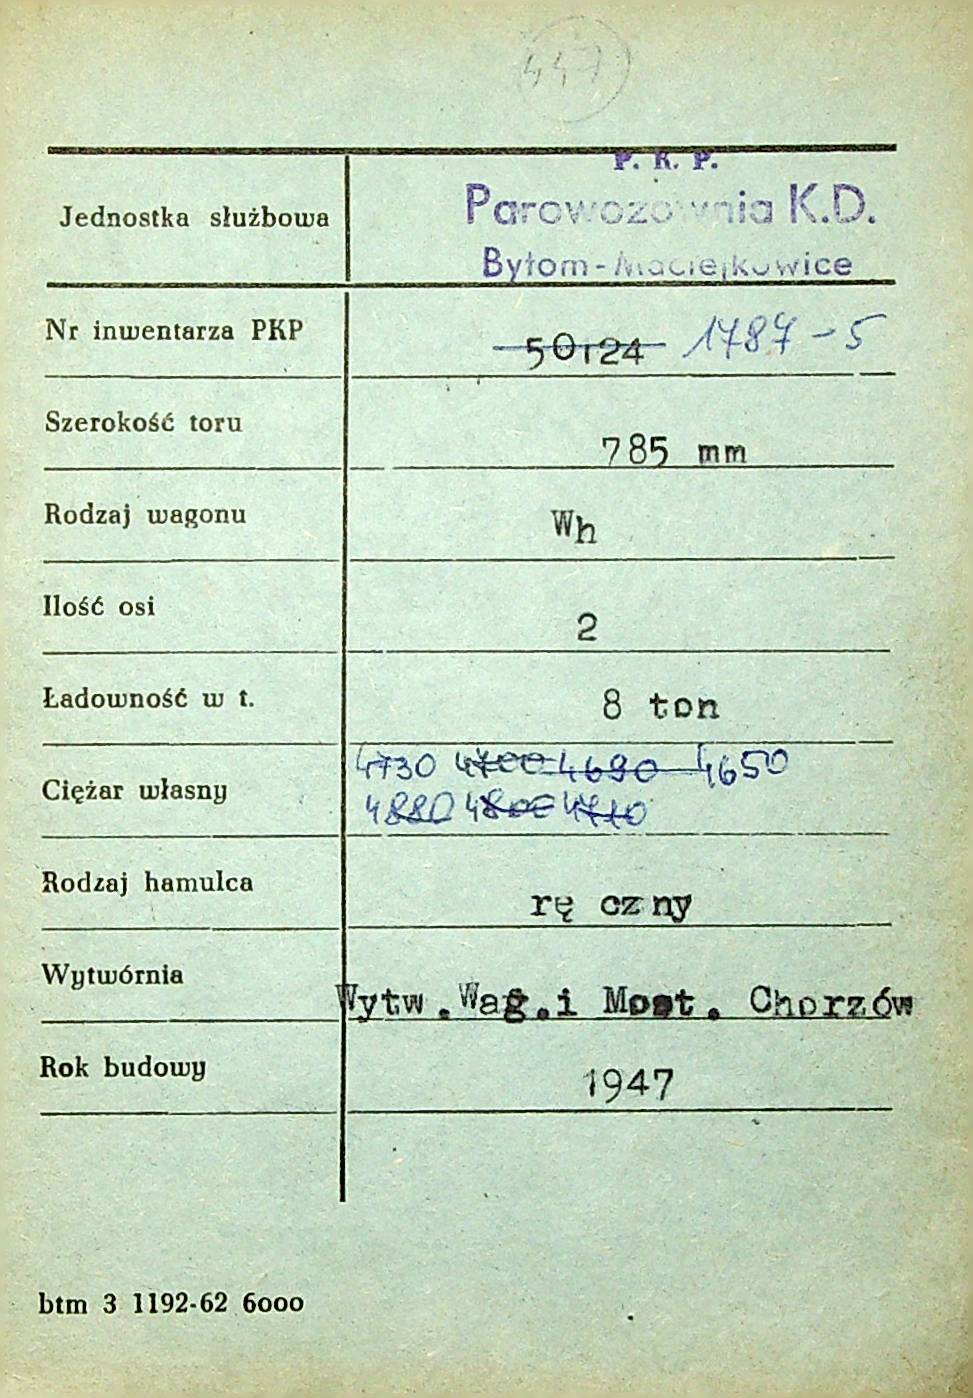 447
P. K. P.
Parowozownia K.D.
Jednostka służbowa
Bytom-Maciejkowice
Nr inwentarza PKP 50124 1787-5
Szerokość toru 785 mm
Rodzaj wagonu Wh
Ilość osi 2
Ładowność w t. 8 ton
4730 4700 4690 4650
Ciężar własny
4880 4800 4710
Rodzaj hamulca rę czny
Wytwórnia Wytw.Wag.i Most. Chorzów
Rok budowy 1947
btm 3 1192-62 6000